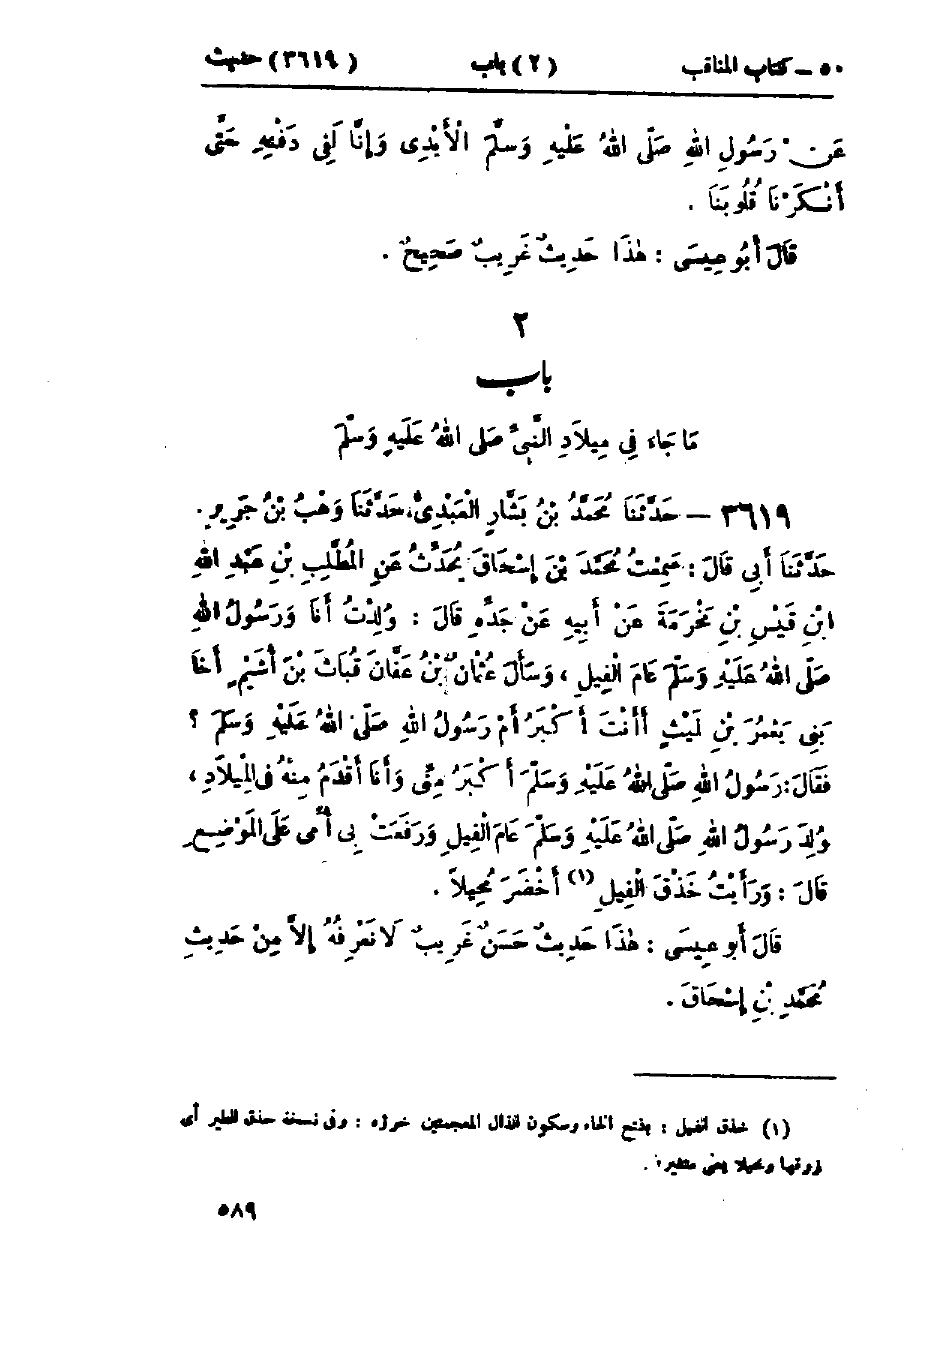 ٥٠ – كتاب المناقب (٢) باب (٣٦١٩) حديث
عَنْ رَسُولِ اللهِ صَلَّى اللهُ عَلَيْهِ وَسَلَّمَ الْأَيْدِى وَإِنَّا لَفِي دَفْنِهِ حَتَّى
أَنْكَرْنَا قُلُوبَنَا .
قَالَ أَبُو عِيسَى : هٰذَا حَدِيثٌ غَرِيبٌ صَحِيحٌ .
٢
باب
مَا جَاءَ فِي مِيلاَدِ النَّبِيِّ صَلَى اللهُ عَلَيهِ وَسَلَّمَ
٣٦١٩ – حَدَّثَنَا مُحَمَّدُ بْنُ بَشَّارٍ الْعَبْدِىُّ، حَدَّثَنَا وَهْبُ بْنُ جَرِيرٍ .
حَدَّثَنَا أَبِي قَالَ : سَمِعْتُ مُحَمَّدَ بْنَ إِسْحَاقَ يُحَدِّثُ عَنِ الْمُطَّلِبِ بْنِ عَبْدِ اللهِ
ابْنِ قَيْسِ بْنِ مَخْرَمَةَ عَنْ أَبِيهِ عَنْ جَدِّهِ قَالَ : وُلِدْتُ أَنَا وَرَسُولُ اللهِ
صَلَّى اللهُ عَلَيْهِ وَسَلَّمَ عَامَ الْفِيلِ ، وَسَأَلَ عُثْمَانُ بْنُ عَفَّانَ قُبَاثَ بْنَ أَشْيَمَ أَخَا
بَنِي يَعْمُرَ بْنِ لَيْثٍ أَأَنْتَ أَكْبَرُ أَمْ رَسُولُ اللهِ صَلَّى اللهُ عَلَيْهِ وَسَلَّمَ ؟
فَقَالَ: رَسُولُ اللهِ صَلَّى اللهُ عَلَيْهِ وَسَلَّمَ أَكْبَرُ مِنِّى وَأَنَا أَقْدَمُ مِنْهُ فِى الْمِيلاَدِ ،
وُلِدَ رَسُولُ اللهِ صَلَّى اللهُ عَلَيْهِ وَسَلَّمَ عَامَ الْفِيلِ وَرَفَعَتْ بِى أُمِّى عَلَى الْمَوْضِعِ
قَالَ : وَرَأَيْتُ خَذْقَ الْفِيلِ (١) أَخْضَرَ مُحِيلاً .
قَالَ أَبُو عِيسَى : هٰذَا حَدِيثٌ حَسَنٌ غَرِيبٌ لَا نَعْرِفُهُ إِلاَّ مِنْ حَدِيثِ
مُحَمَّدِ بْنِ إِسْحَاقَ .
(١) خذق الفيل : بفتح الخاء وسكون الذال المعجمتين خرؤه : وفى نسخة حذق للطير أى
زرقها ومحيلا يعنى متغيرا .
٥٨٩